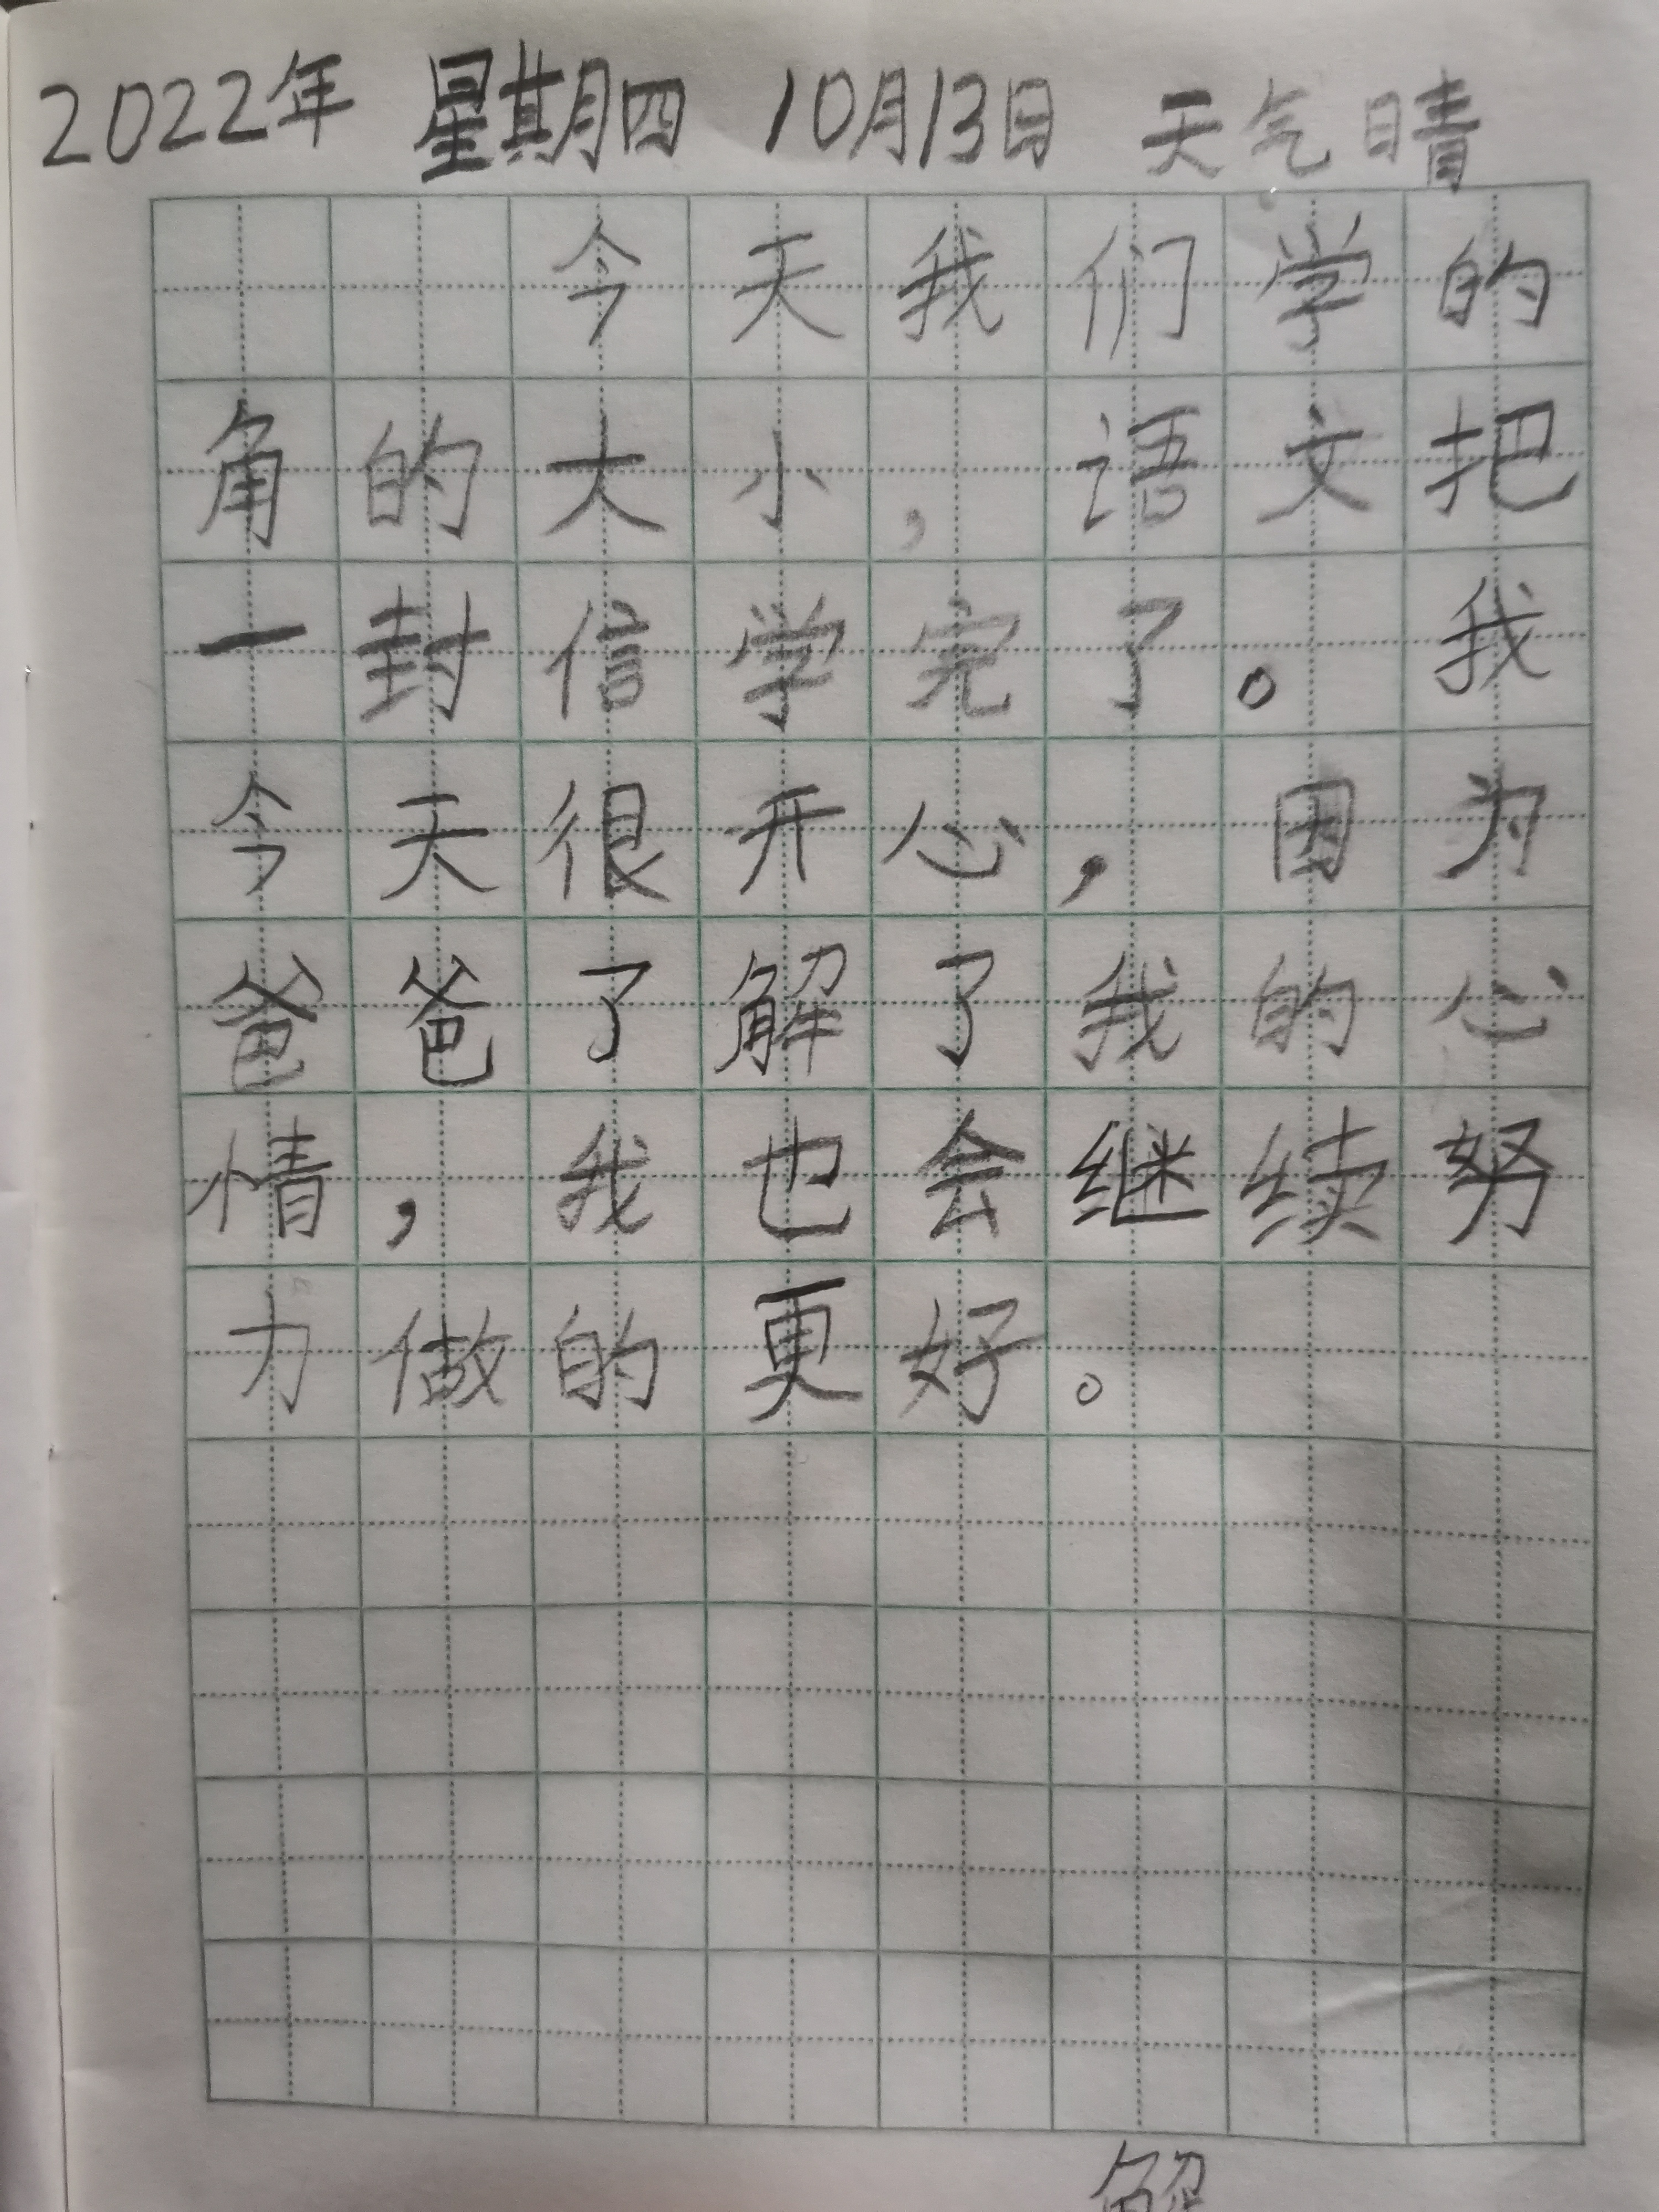 2022年 星期四 10月13日 天气晴
今天我们学的
角的大小，语文把
一封信学完了。我
今天很开心，因为
爸爸了解了我的心
情，我也会继续努
力做的更好。
解